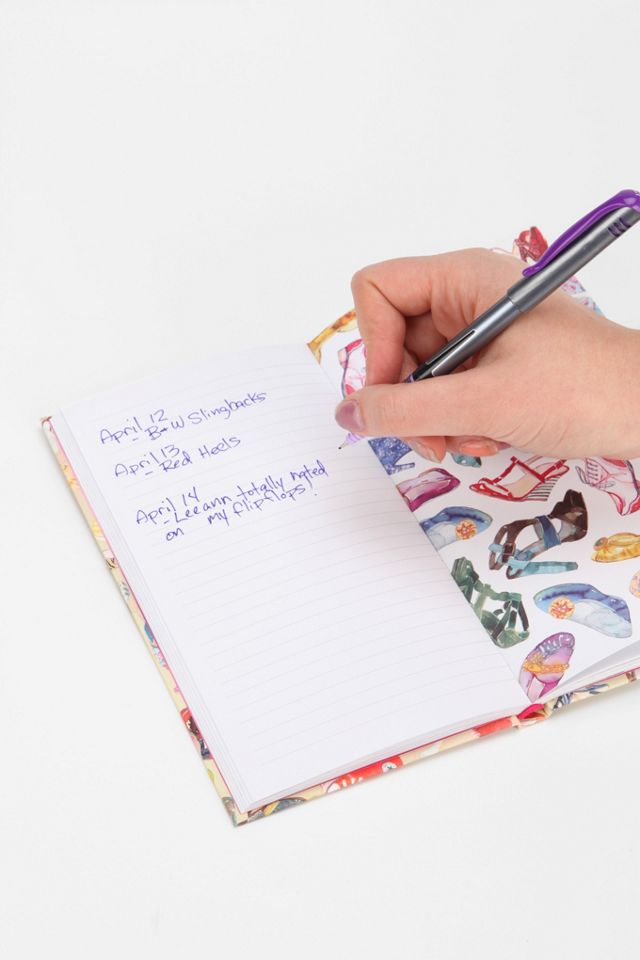 April 12
- B+W Slingbacks
April 13
- Red Heels
April 14
- Leeann totally hated
on my flipflops!